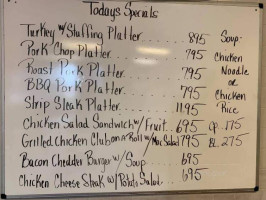 Todays Specials
Turkey w/Stuffing Platter... 895 Soup-
Pork Chop Platter....... 795 Chicken
Roast Pork Platter...... 795 Noodle
BBQ Pork Platter...... 795 or
Strip Steak Platter..... 1195 Chicken
Rice
Chicken Salad Sandwich w/ Fruit.. 695 Cp. 175
Grilled Chicken Club on a Roll w/ Mac Salad 795 BL 275
Bacon Chedder Burger w/ Soup 695
Chicken Cheese Steak w/ Potato Salad... 695